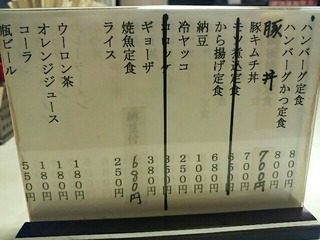 ハンバーグ定食 800円
ハンバーグかつ定食 800円
豚丼 700円
豚キムチ丼 700円
モツ煮込定食 650円
から揚げ定食 680円
納豆 100円
冷ヤッコ 250円
コロッケ 350円
ギョーザ 380円
焼魚定食 680円
ライス 250円
ウーロン茶 180円
オレンジジュース 180円
コーラ 180円
瓶ビール 550円